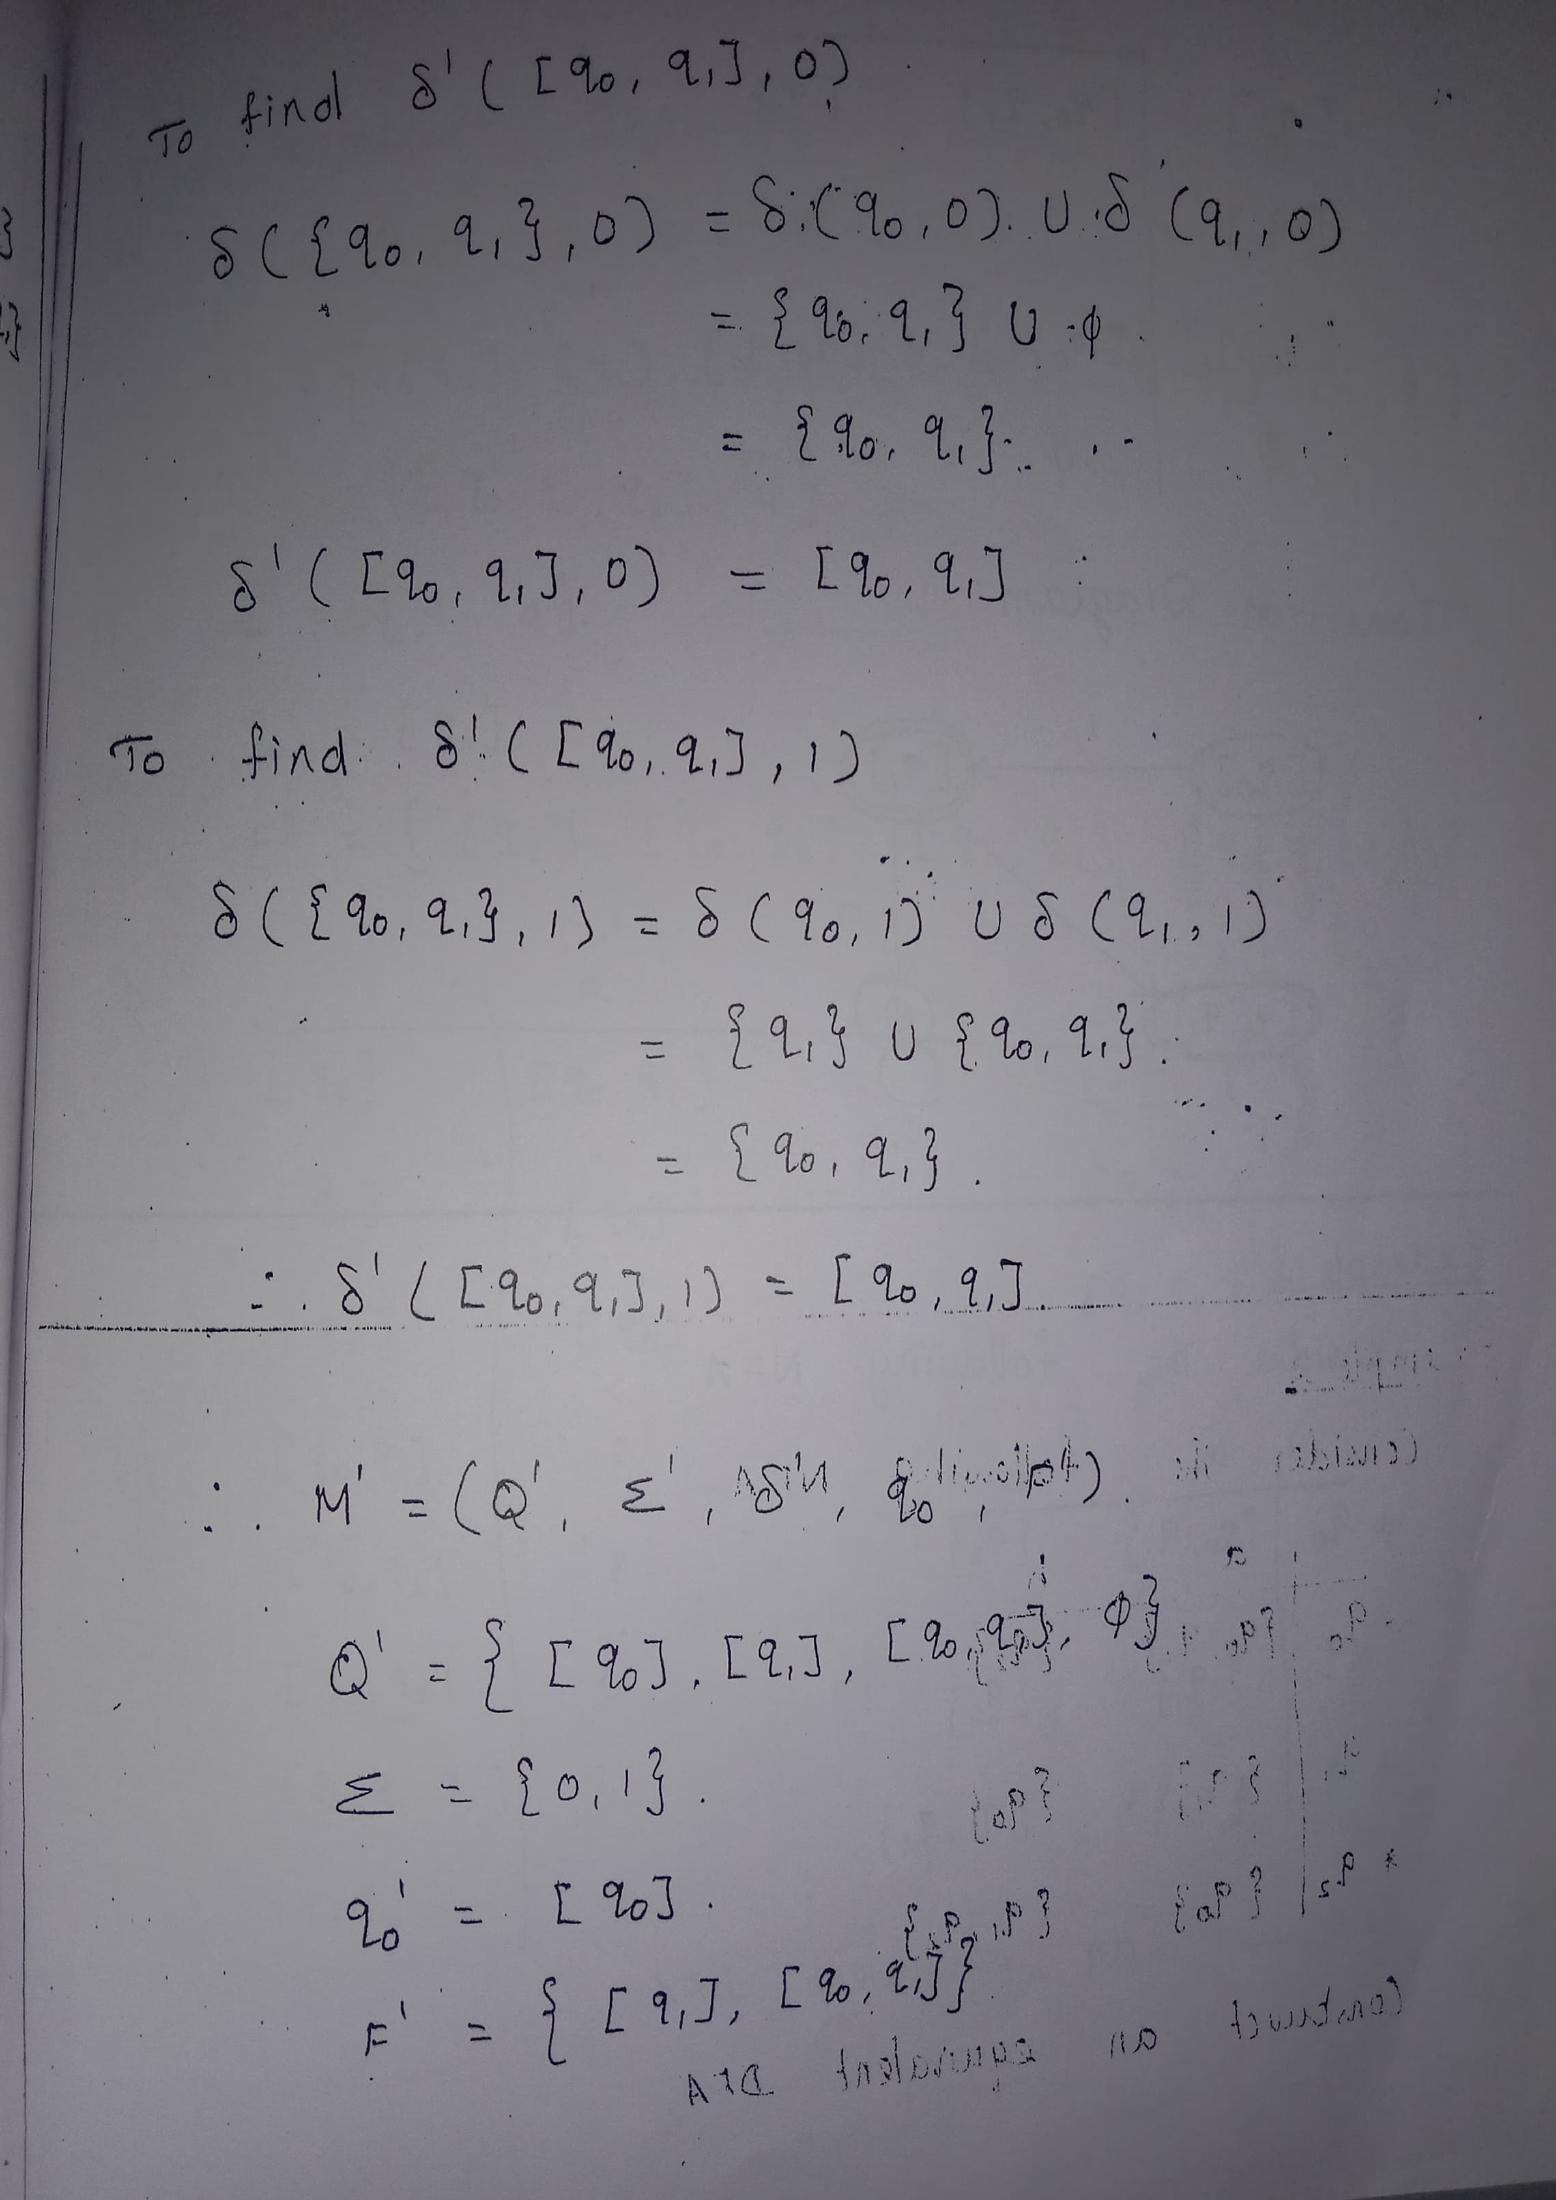 To find δ' ( [q₀, q₁], 0)
δ ( {q₀, q₁}, 0) = δ (q₀, 0) ∪ δ (q₁, 0)
= {q₀, q₁} ∪ ϕ
= {q₀, q₁}
δ' ( [q₀, q₁], 0) = [q₀, q₁]
To find δ' ( [q₀, q₁], 1)
δ ( {q₀, q₁}, 1) = δ (q₀, 1) ∪ δ (q₁, 1)
= {q₁} ∪ {q₀, q₁}.
= {q₀, q₁}.
∴ δ' ( [q₀, q₁], 1) = [q₀, q₁].
∴ M' = (Q', Σ', δ', q₀', F').
Q' = { [q₀], [q₁], [q₀, q₁], ϕ}
Σ = {0, 1}.
q₀' = [q₀].
F' = { [q₁], [q₀, q₁]}